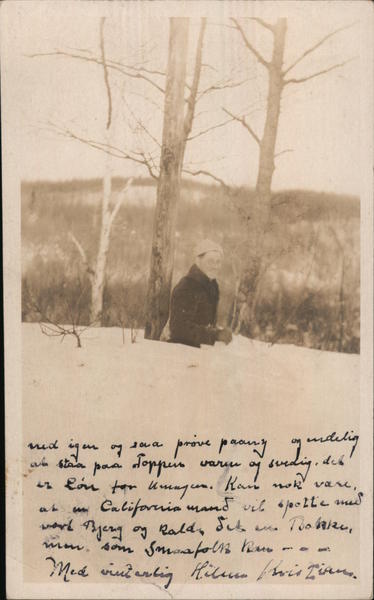 ned igen og saa prøve paany og endelig
at staa paa Toppen varm og svedig, det
er Løn for Umagen. Kan nok være,
at en Californiamand vil spotte med
vort Bjerg og kalde det en Bakke,
men som Smaafolk kan - - -
Med vinterlig Hilsen Kristian.